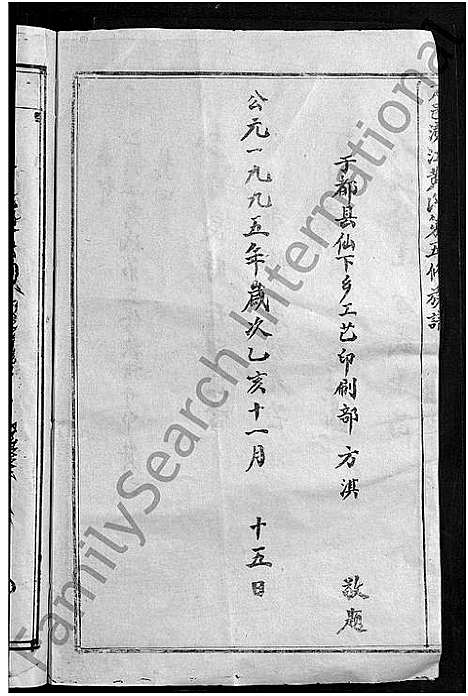 五修族譜
于都县仙下乡工艺印刷部 方淇 敬题
公元一九九五年歲次乙亥十一月 十五日
FamilySearch International